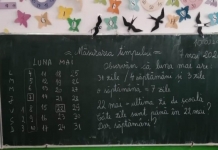 = Măsurarea timpului =
7 mai
LUNA MAI
Observăm că luna mai are
31 zile / 4 săptămâni și 3 zile
o săptămână = 7 zile
22 mai - ultima zi de școală
Câte zile sunt până în 22 mai?
Dar săptămâni?
L 4 11 18 25
M 5 12 19 26
M 6 13 20 27
J 7 14 21 28
V 1 8 15 22 29
S 2 9 16 23 30
D 3 10 17 24 31